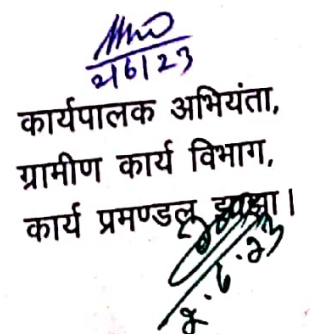 2/6/23
कार्यपालक अभियंता,
ग्रामीण कार्य विभाग,
कार्य प्रमण्डल, झाझा।
2.6.23